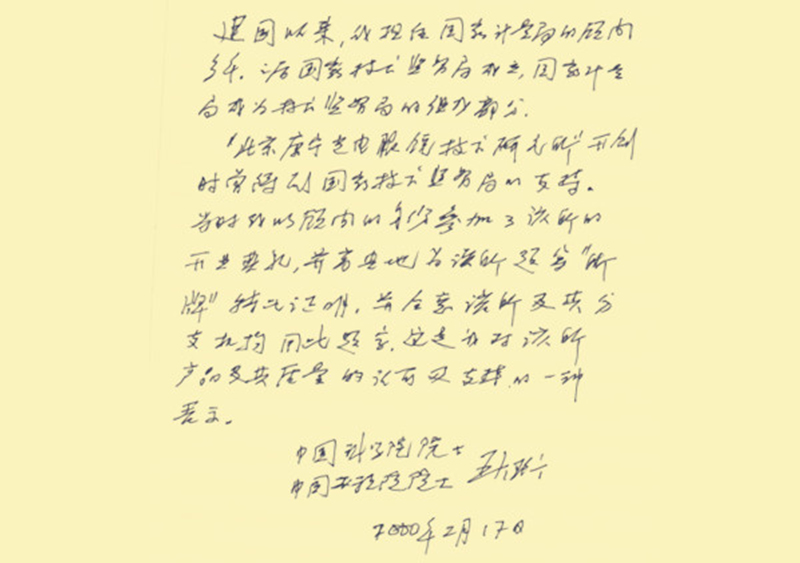 建国以来,我担任国家计量局的顾问
多年。后国家技术监督局成立,国家计量
局成为技术监督局的组成部分。
"北京康宁光电眼镜技术研究所"开创
时曾得到国家技术监督局的支持。
当时我以顾问的身份参加了该所的
开业典礼,并高兴地为该所题写"所
牌"特此证明。并同意该所及其分
支机构用此题字。这是我对该所
产品及其质量的认可及支持的一种
表示。
中国科学院院士
中国工程院院士 王大珩
2000年2月17日